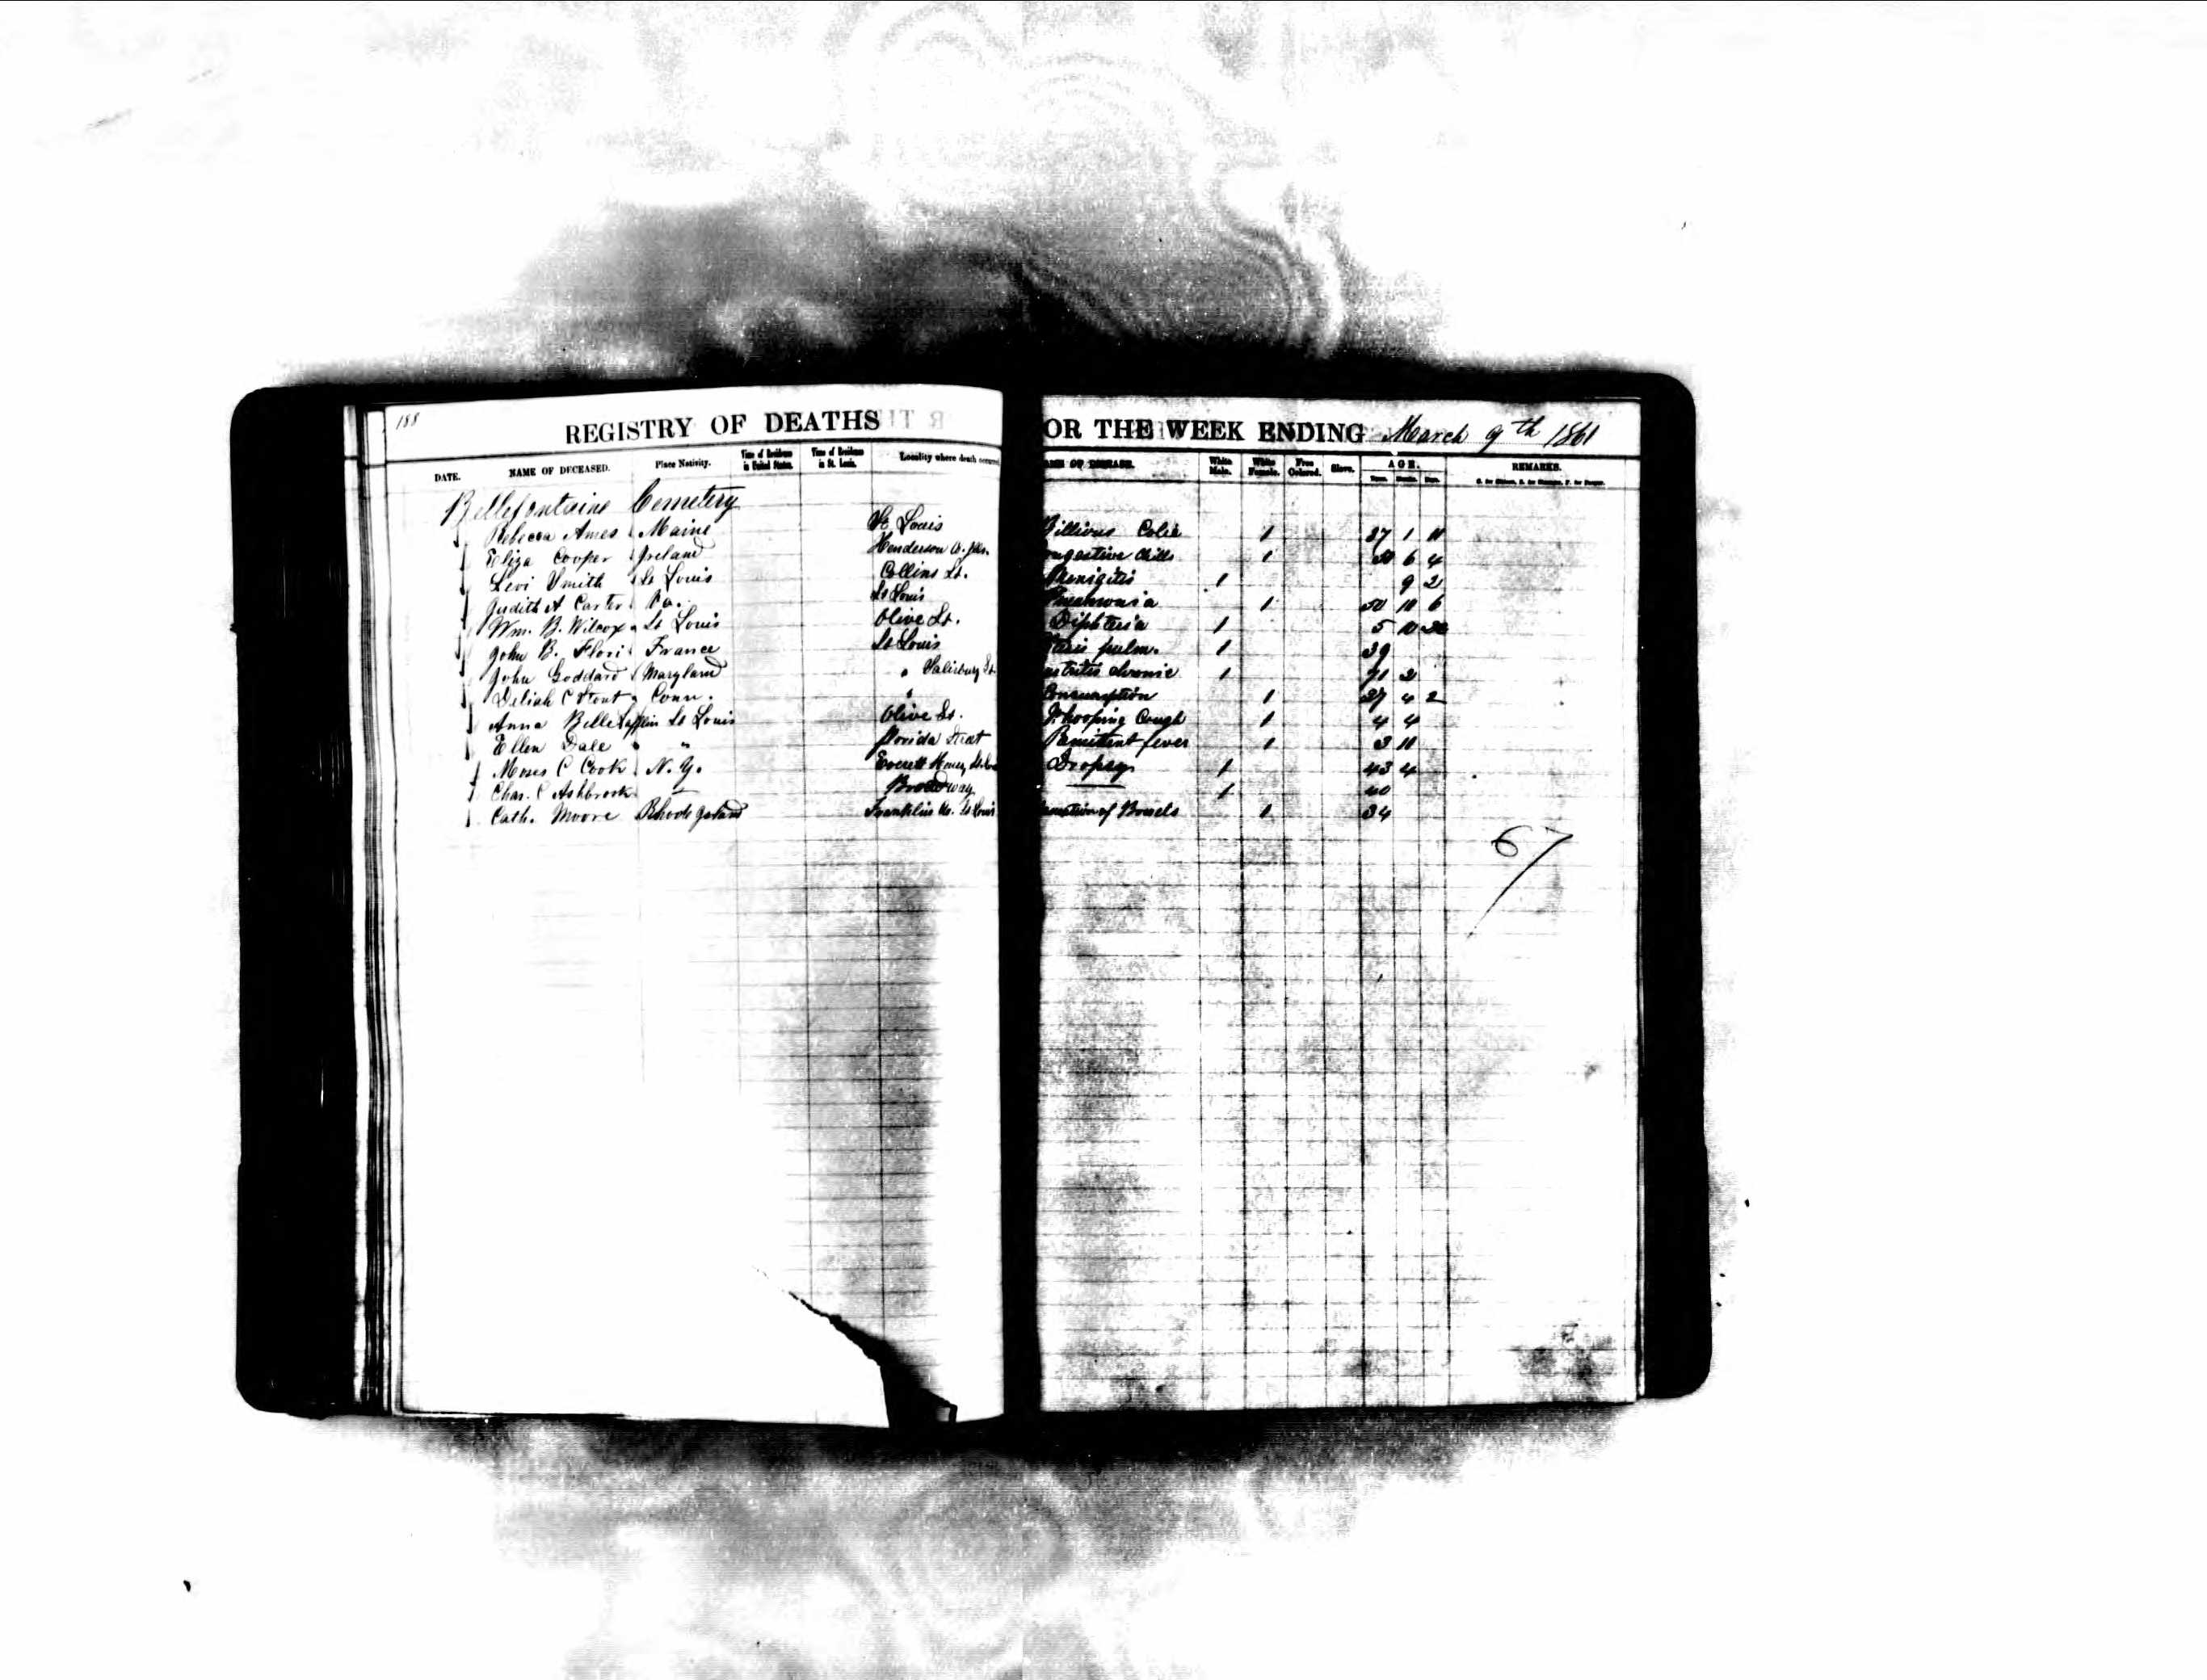 188
REGISTRY OF DEATHS OR THE WEEK ENDING March 9th 1861
DATE. NAME OF DECEASED. Place Nativity. Time of Residence in United States. Time of Residence in St. Louis. Locality where death occurred White Male. White Female. Free Colored. Slave. AGE. REMARKS.
Bellefontaine Cemetery
Rebecca Ames Maine St Louis Billious Colic 1 37 1 11
Eliza Cooper Ireland Henderson ongestive Chills 1 30 6 4
Levi Smith St Louis Collins St. Menigitis 1 9 2
Judith A Carter St Louis Pneumonia 1 50 10 6
Wm. B. Wilcox St Louis Olive St. Diphteria 1 5 10
John B. Flori France St Louis pulm. 1 39
John Goddard Maryland " Salisbury St chronic 1 71 2
Deliah C Stout Conn. " Consumption 1 37 4 2
Anna Belle Laflin St Louis Olive St. Whooping Cough 1 4 4
Ellen Dale " " Florida Street Remittent fever 1 3 11
Moses C Cook N. Y. Everett House Dropsy 1 43 4
Chas. C Ashbrook — Broadway — 1 40
Cath. Moore Rhode Island Franklin St Louis of Bowels 1 34
67